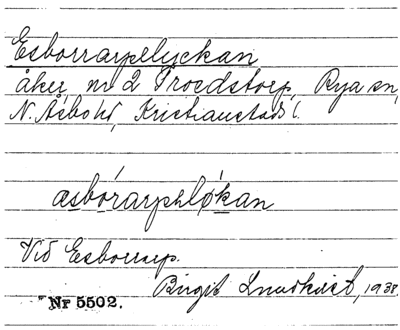 Esborrarpelyckan
åker, nr 2 Troedstorp, Rya sn,
N. Åsbo hd, Kristianstads l.
Vid Esborrarp.
Birgit Lindkvist, 1938.
Nr 5502.